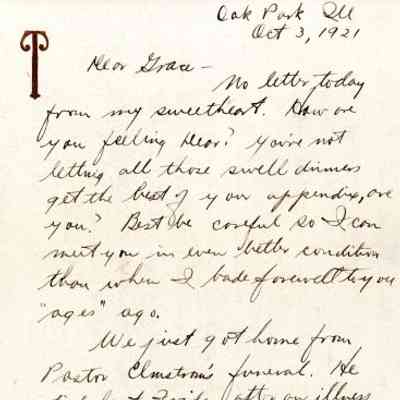 Oak Park Ill
Oct 3, 1921
T
Dear Grace —
No letter today
from my sweetheart. How are
you feeling dear? You're not
letting all those swell dinners
get the best of your appendix, are
you? Best be careful so I can
meet you in even better condition
than when I bade farewell to you
"ages" ago.
We just got home from
Pastor Elmstrom's funeral. He
after an illness